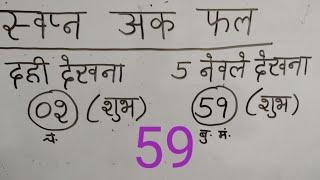 स्वप्न अंक फल
दही देखना 5 नेवले देखना
0२ (शुभ) 59 (शुभ)
चं. बु. मं.
59